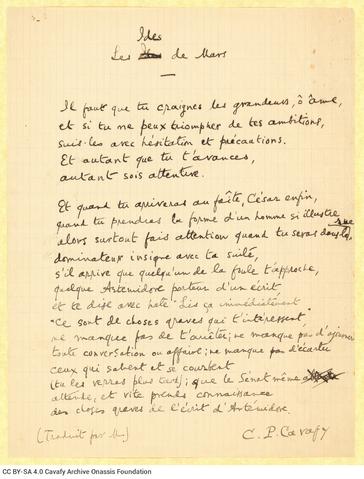 Ides
Les de Mars
Il faut que tu craignes les grandeurs, ô âme,
et si tu ne peux triompher de tes ambitions,
suis-les avec hésitation et précautions.
Et autant que tu t'avances,
autant sois attentive.
Et quand tu arriveras au faîte, César enfin,
quand tu prendras la forme d'un homme si illustre
alors surtout fais attention quand tu seras dans la rue
dominateur insigne avec ta suite,
s'il arrive que quelqu'un de la foule t'approche,
quelque Artémidore porteur d'un écrit
et te dise avec hâte "Lis ça immédiatement
"Ce sont de choses graves que t'intéressent"
ne manque pas de t'arrêter; ne manque pas d'ajourner
toute conversation ou affaire; ne manque pas d'écarter
ceux qui saluent et se courbent
(tu les verras plus tard); que le Sénat même
attende, et vite prends connaissance
des choses graves de l'écrit d'Artémidore.
(Traduit par
C. P. Cavafy
CC BY-SA 4.0 Cavafy Archive Onassis Foundation